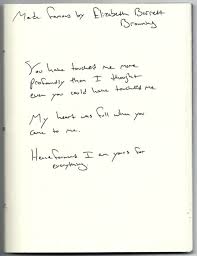 Made famous by Elizabeth Barrett
Browning
You have touched me more
profoundly than I thought
even you could have touched me
My heart was full when you
came to me.
Henceforward I am yours for
everything.